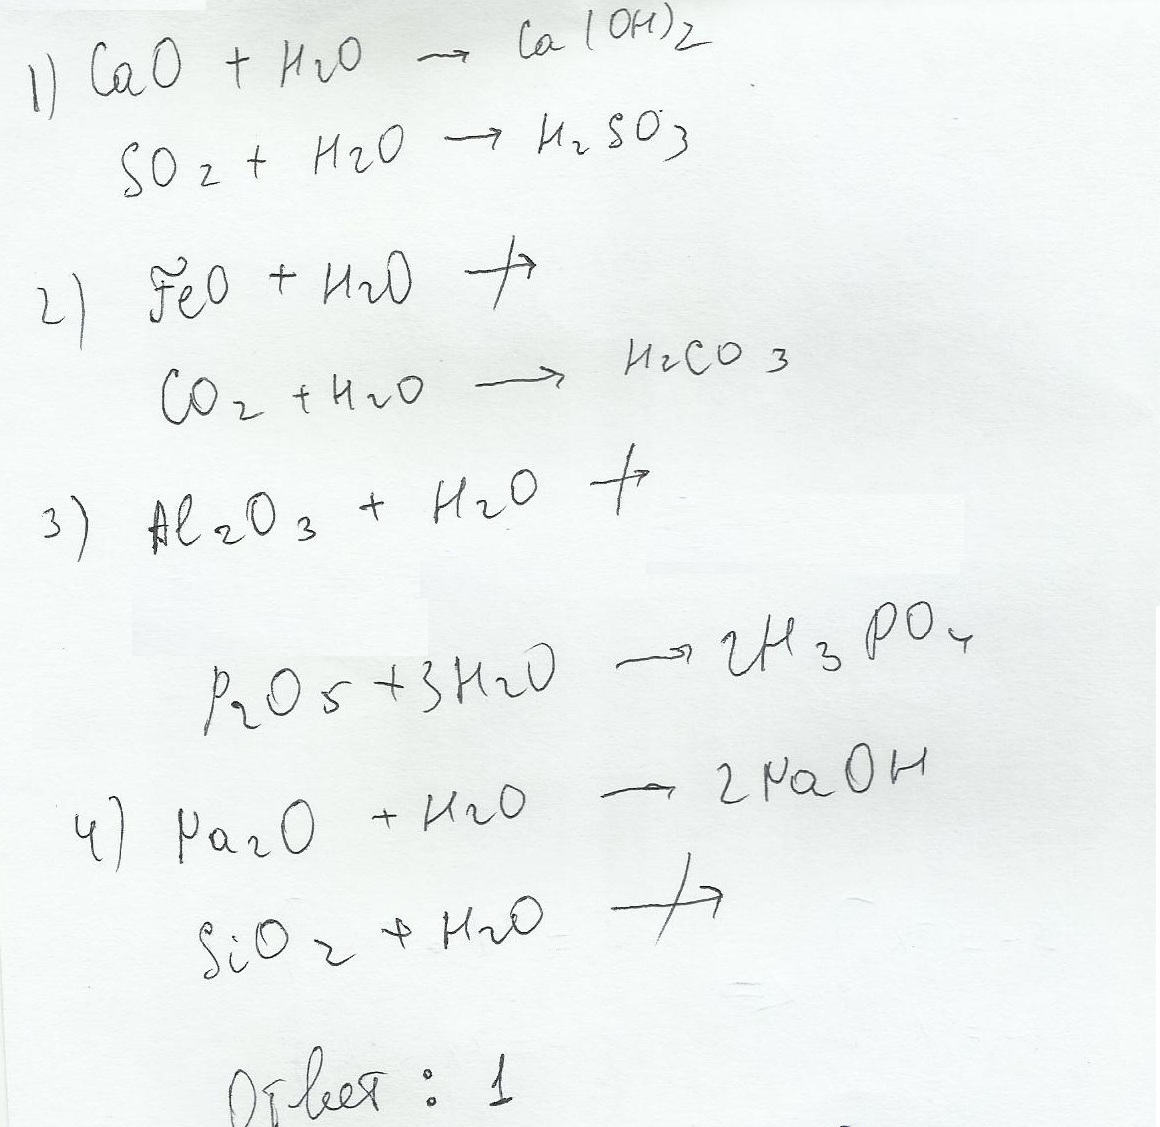 1) CaO + H2O → Ca(OH)2
SO2 + H2O → H2SO3
2) FeO + H2O ↛
CO2 + H2O → H2CO3
3) Al2O3 + H2O ↛
P2O5 + 3H2O → 2H3PO4
4) Na2O + H2O → 2NaOH
SiO2 + H2O ↛
Ответ : 1